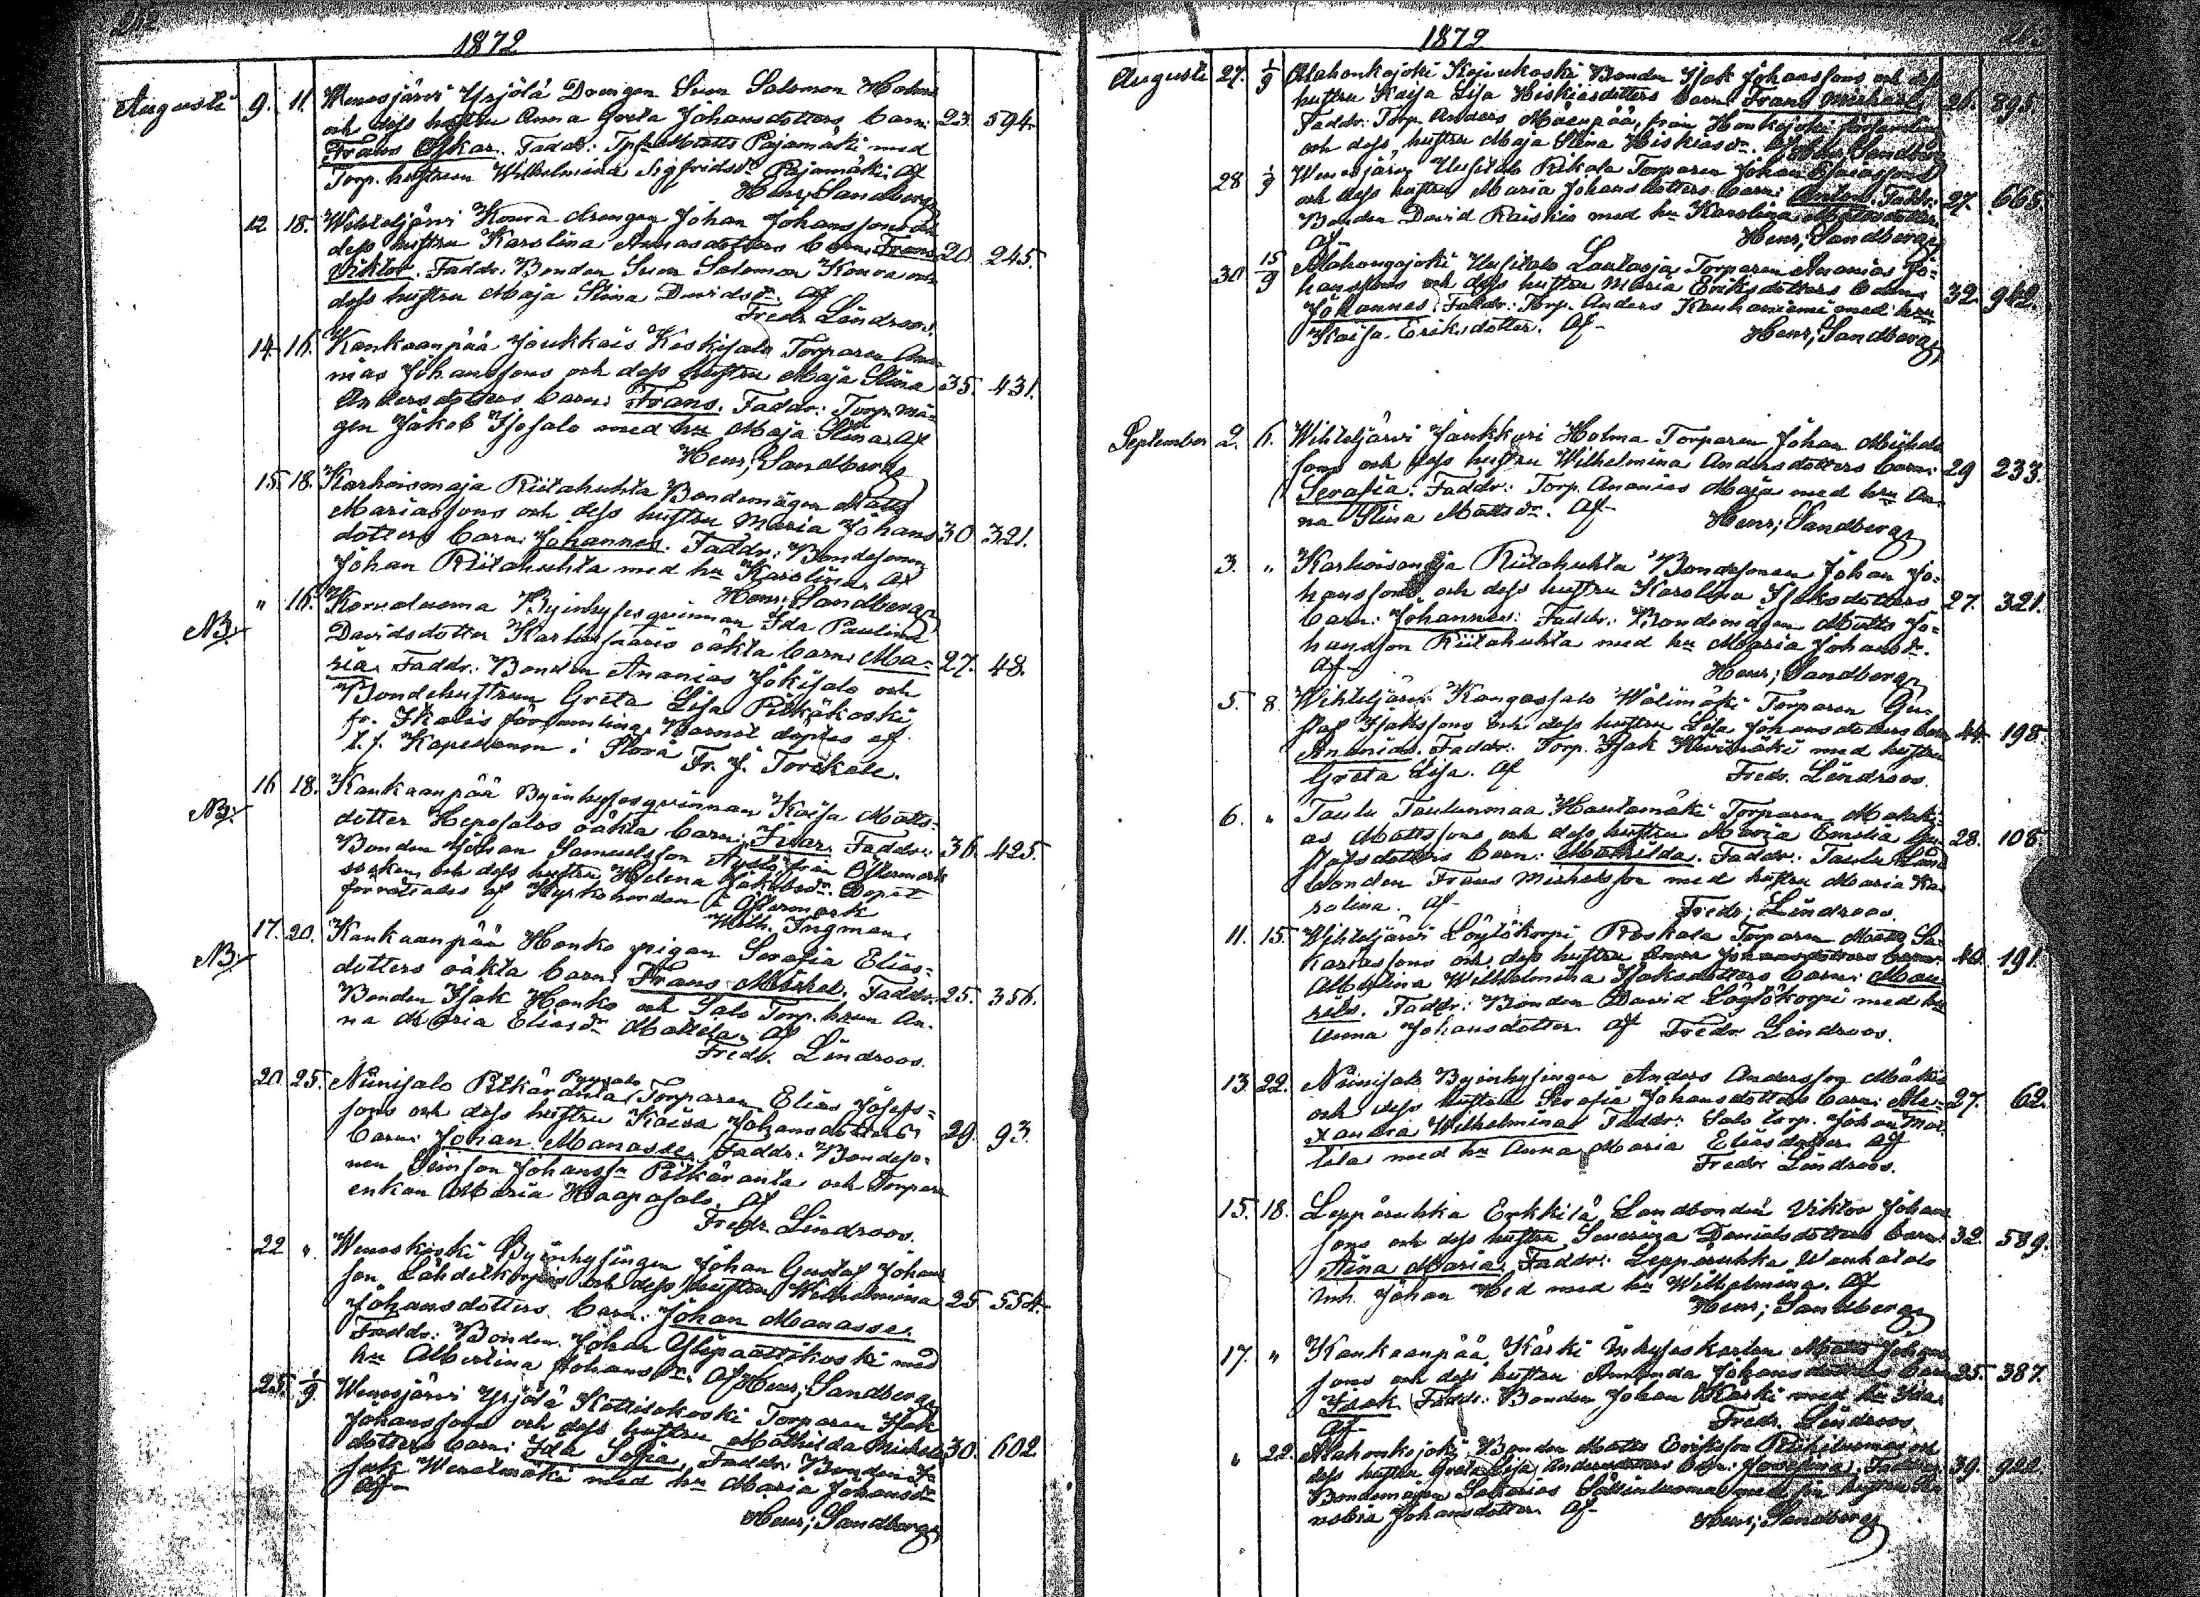 262
1872
Augusti 9. 11. Wenesjärvi Yrjölä Drengen Sven Salomon Holma
och dess hustru Anna Greta Johansdotters barn: 23. 594.
Frans Oskar. Faddr: Tp. Matts Pajamäki med
Torp. hustrun Wilhelmina Sigfridsdr Pajamäki. Af
Henr; Sandberg
12 18. Wihteljärvi Koura drengen Johan Johanssons och
dess hustru Karolina Annasdotters barn: Frans 20. 245.
Viktor. Faddr. Bonden Sven Salomon Koura och
dess hustru Maja Stina Davidsdr. Af
Fredr. Lindroos.
14. 16. Kankaanpää Joukkais Koskisalo Torparen Ana-
nias Johanssons och dess hustru Maja Stina 35. 431.
Andersdotters barn: Frans. Faddr: Torp. må-
gen Jakob Isosalo med hu Maja Stina. Af
Henr; Sandberg
15. 18. Karhoismaja Riitahuhta Bondemågen Matts
Mariassons och dess hustru Maria Johans 30. 321.
dotters barn: Johannes. Faddr: Bondesonen
Johan Riitahuhta med hu Karolina. Af
Henr; Sandberg
NB. " 16. Korvaluoma Byinhysesqvinnan Ida Paulina
Davidsdotter Karhusaaris oäkta barn: Ma- 27. 48.
ria. Faddr: Bonden Ananias Jokisalo och
Bondehustrun Greta Lisa Pitkäkoski
fr. Ikalis församling. Barnet döptes af
t. f. Kapellanen i Storå
Fr. J. Torckell.
NB. 16 18. Kankaanpää Byinhysesqvinnan Kaisa Matts-
dotter Heposalos oäkta barn: Ivar. Faddr: 36. 425.
Bonden Johan Samuelsson från Östermark
socken och dess hustru Helena Jakobsdr. Dopet
förrättades af Kyrkoherden i Östermark
Wilh. Ingman.
NB. 17. 20. Kankaanpää Honko pigan Serafia Elias-
dotters oäkta barn: Frans Mickel. Faddr. 25. 356.
Bonden Isak Honko och Salo Torp. hrun An-
na Maria Eliasdr Mattila. Af
Fredr. Lindroos.
20. 25. Niinisalo Pitkäranta Torparen Elias Josefs-
sons och dess hustru Kaisa Johansdotters 29. 93.
barn: Johan Manasse. Faddr: Bondeso-
nen Johanssn Pitkäranta och Torpare
enkan Maria Haapasalo. Af
Fredr. Lindroos.
22 " Weneskoski Byinhysingen Johan Gustaf Johans
son Lähdetkorpis och dess hustru Wilhelmina 25 554.
Johansdotters barn: Johan Manasse.
Faddr: Bonden Johan Ylipaattikoski med
hu Albertina Johansdr. Af Henr; Sandberg
25. 1/9. Wenesjärvi Yrjölä Kottilakoski Torparen Isak
Johanssons och dess hustru Mathilda Mickels 30. 602
dotters barn: Ida Sofia. Faddr. Bonden I-
sak med hu Maria Johansdr
Af-
Henr; Sandberg
1872
Augusti 27. 1/9 Alahonkajoki Kojukoski Bonden Isak Johanssons och dess
hustru Kaisa Lisa Hiskiasdotters barn: Frans Mickael. 26. 895.
Faddr: Torp. Anders Mäenpää från Honkajoki församling
och dess hustru Maja Stina Hiskiasdr. Af Henr; Sandberg
28 1/9 Wenesjärvi Uusitalo Rikala Torparen Johan
och dess hustru Maria Johansdotters barn: Anton. Faddr: 27. 665.
Bonden David Raiskio med hu Karolina Mattsdotter
Af Henr; Sandberg
30 15/9 Alahongajoki Uusitalo Lautaoja Torparen Ananias Jo-
hanssons och dess hustru Maria Eriksdotters barn: 32. 942.
Johannes. Faddr: Torp. Anders Kauhaniemi med hru
Kaisa Eriksdotter. Af-
Henr; Sandberg
September 2. 6. Wihteljärvi Jankkari Holma Torparen Johan Mickels
sons och dess hustru Wilhelmina Andersdotters barn: 29 233.
Serafia. Faddr: Torp. Ananias Maja med hru An-
na Stina Mattsdr. Af-
Henr; Sandberg
3. " Karhoismaja Riitahuhta Bondesonen Johan Jo-
hanssons och dess hustru Karolina Isaksdotters 27. 321.
barn: Johannes. Faddr. Bondemågen Matts Jo-
hansson Riitahuhta med hu Maria Johansdr.
Af-
Henr; Sandberg
5. 8. Wihteljärvi Kangassalo Wälimäki Torparen Gu-
staf Isakssons och dess hustru Lisa Johansdotters barn 44. 198.
Ananias. Faddr: Torp. Isak Kivimäki med hustru
Greta Lisa. Af
Fredr. Lindroos.
6. " Taulu Taulunmaa Hautamäki Torparen Malaki-
as Mattssons och dess hustru Maria Emelia Gu- 28. 108.
stafsdotters barn: Mathilda. Faddr: Taulu Land
bonden Frans Mickelsson med hustru Maria Ka-
rolina. Af-
Fredr; Lindroos.
11. 15. Wihteljärvi Löytökorpi Roskala Torparen Matts Sa-
kariassons och dess hustru Anna Johansdotters barn: 40. 191.
Albertina Wilhelmina Isaksdotters barn: Mau-
rits. Faddr: Bonden David Löytökorpi med hu
Anna Johansdotter. Af Fredr. Lindroos.
13 22. Niinisalo Byinhysingen Anders Andersson Mäkis
och dess hustru Serafia Johansdotters barn: Ale- 27. 62.
xandra Wilhelmina. Faddr: Salo torp. Johan Mat-
tila med hu Anna Maria Eliasdotter. Af
Fredr Lindroos.
15. 18. Leppäruhka Erkkilä Landbonden Viktor Johans
sons och dess hustru Severina Danielsdotters barn: 32. 589.
Aina Maria. Faddr: Leppäruhka Wanhatalo
Inh. Johan Hed med hu Wilhelmina. Af
Henr; Sandberg
17. " Kankaanpää Karki Inhyseskarlen Matts Johans
sons och dess hustru Amanda Johansdotters barn 25. 387.
Isak. Faddr: Bonden Johan Karki med hu Ida.
Af-
Fredr. Lindroos.
" 22. Alahonkajoki Bonden Matts Eriksson Riihiluomas och
dess hustru Greta Lisa Andersdotters barn: Josefina. Faddr: 39. 922.
Bondemågen Sakarias med sin hustru Se-
nobia Johansdotter. Af-
Henr; Sandberg